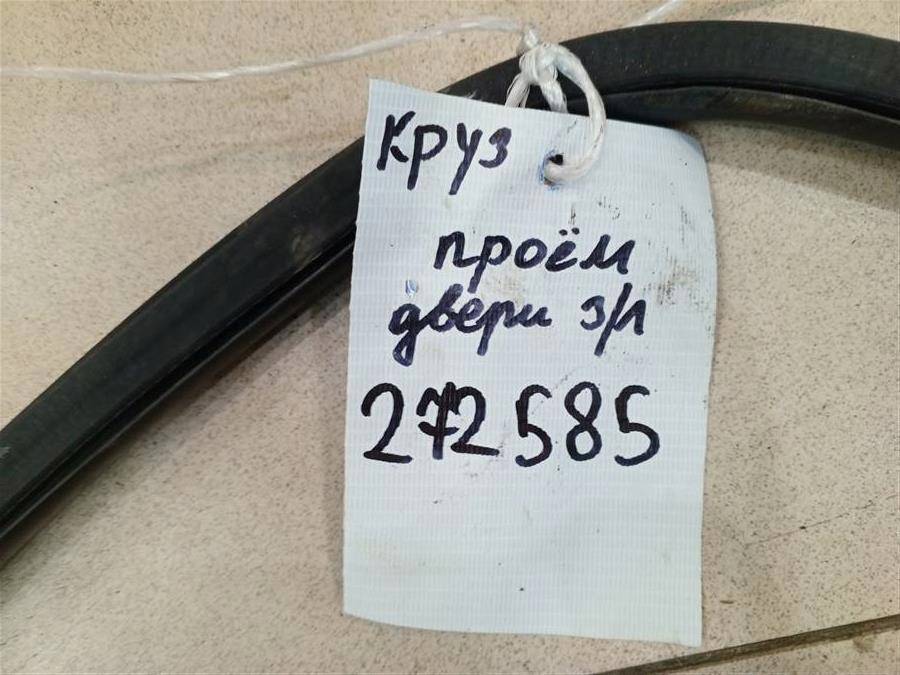 Круз
проём
двери з/л
272585